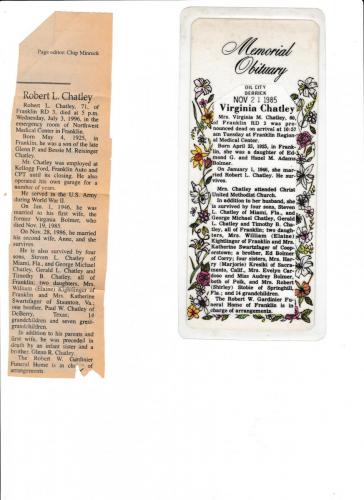 Page editor: Chip Minnock
Robert L. Chatley
Robert L. Chatley, 71, of
Franklin RD 3, died at 5 p.m.
Wednesday, July 3, 1996, in the
emergency room of Northwest
Medical Center in Franklin.
Born May 4, 1925, in
Franklin, he was a son of the late
Glenn P. and Bessie M. Reisinger
Chatley.
Mr. Chatley was employed at
Kellogg Ford, Franklin Auto and
CPT until its closing. He also
operated his own garage for a
number of years.
He served in the U.S. Army
during World War II.
On Jan. 1, 1946, he was
married to his first wife, the
former Virginia Bolmer, who
died Nov. 19, 1985.
On Nov. 28, 1986, he married
his second wife, Anne, and she
survives.
He is also survived by four
sons, Steven L. Chatley of
Miami, Fla., and George Michael
Chatley, Gerald L. Chatley and
Timothy B. Chatley, all of
Franklin; two daughters, Mrs.
William (Elaine) Kightlinger of
Franklin and Mrs. Katherine
Swartzfager of Staunton, Va.;
one brother, Paul W. Chatley of
DeBerry, Texas; 14
grandchildren and seven great-
grandchildren.
In addition to his parents and
first wife, he was preceded in
death by an infant sister and a
brother, Glenn R. Chatley.
The Robert W. Gardinier
Funeral Home is in charge of
arrangements.
Memorial
Obituary
OIL CITY
DERRICK
NOV 21 1985
Virginia Chatley
Mrs. Virginia M. Chatley, 60,
of Franklin RD 3 was pro-
nounced dead on arrival at 10:57
am Tuesday at Franklin Region-
al Medical Center.
Born April 23, 1925, in Frank-
lin, she was a daughter of Ed-
mond G. and Hazel M. Adams
Bolmer.
On January 1, 1946, she mar-
ried Robert L. Chatley. He sur-
vives.
Mrs. Chatley attended Christ
United Methodist Church.
In addition to her husband, she
is survived by four sons, Steven
L. Chatley of Miami, Fla., and
George Michael Chatley, Gerald
L. Chatley and Timothy B. Chat-
ley, all of Franklin; two daugh-
ters, Mrs. William (Elaine)
Kightlinger of Franklin and Mrs.
Katherine Swartzfager of Coop-
erstown; a brother, Ed Bolmer
of Corry; four sisters, Mrs. Har-
ry (Marjorie) Kreslki of Sacra-
mento, Calif., Mrs. Evelyn Car-
doso and Miss Audrey Bolmer,
both of Polk, and Mrs. Robert
(Shirley) Stoble of Springhill,
Fla.; and 14 grandchildren.
The Robert W. Gardinier Fu-
neral Home of Franklin is in
charge of arrangements.